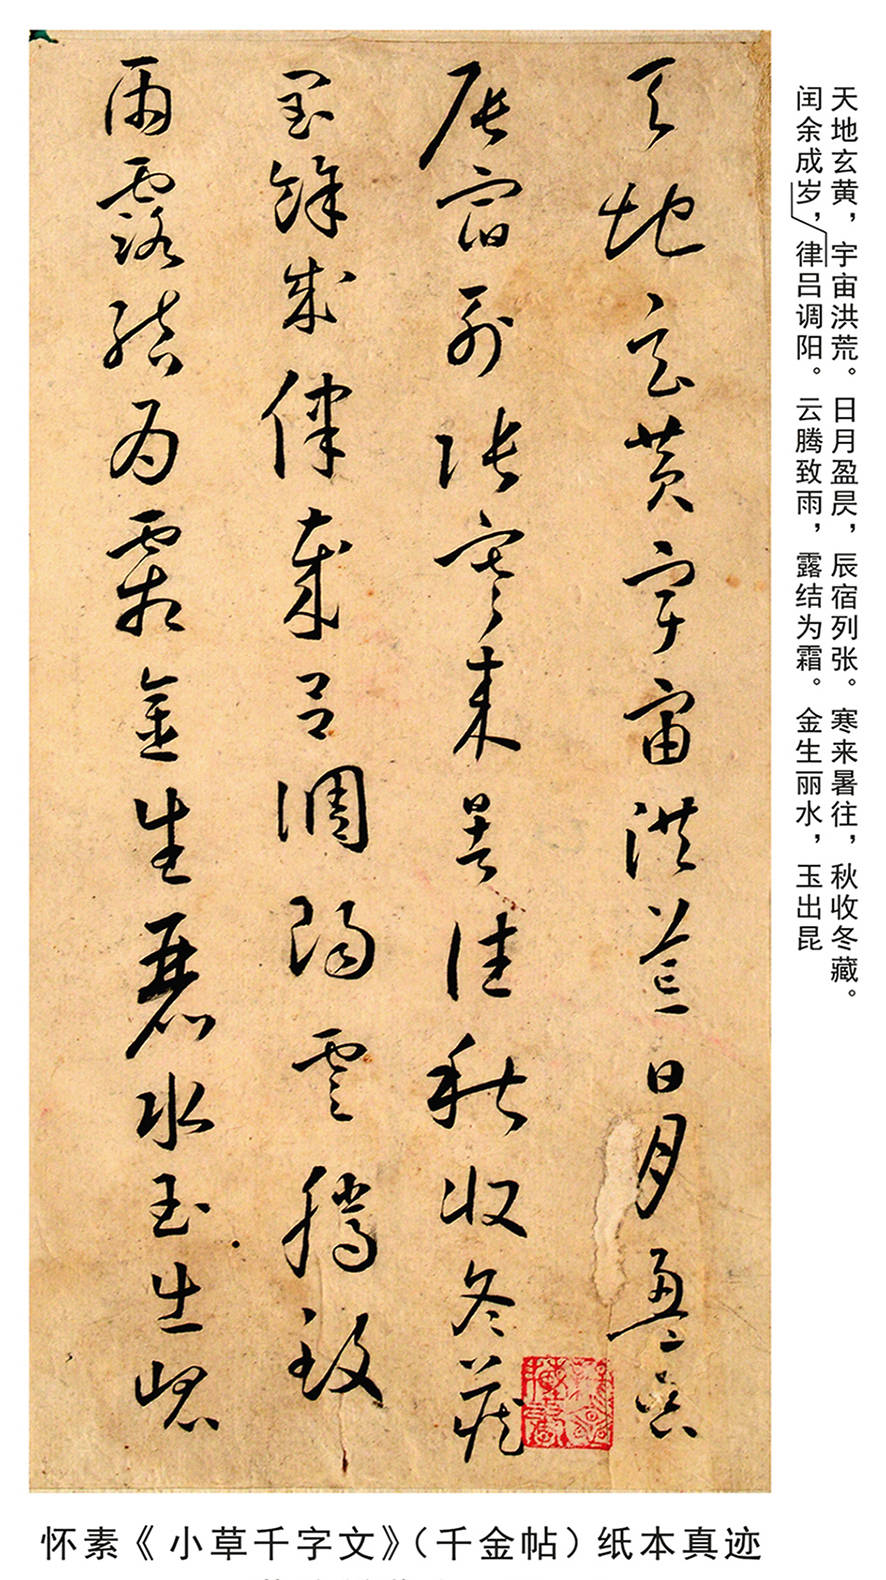 天地玄黄，宇宙洪荒。日月盈昃，辰宿列张。寒来暑往，秋收冬藏。
闰余成岁，律吕调阳。云腾致雨，露结为霜。金生丽水，玉出昆
天地玄黄宇宙洪荒日月盈昃
辰宿列张寒来暑往秋收冬藏
閏餘成律歲吕調陽雲騰致
雨露結為霜金生麗水玉出崐
怀素《小草千字文》（千金帖）纸本真迹